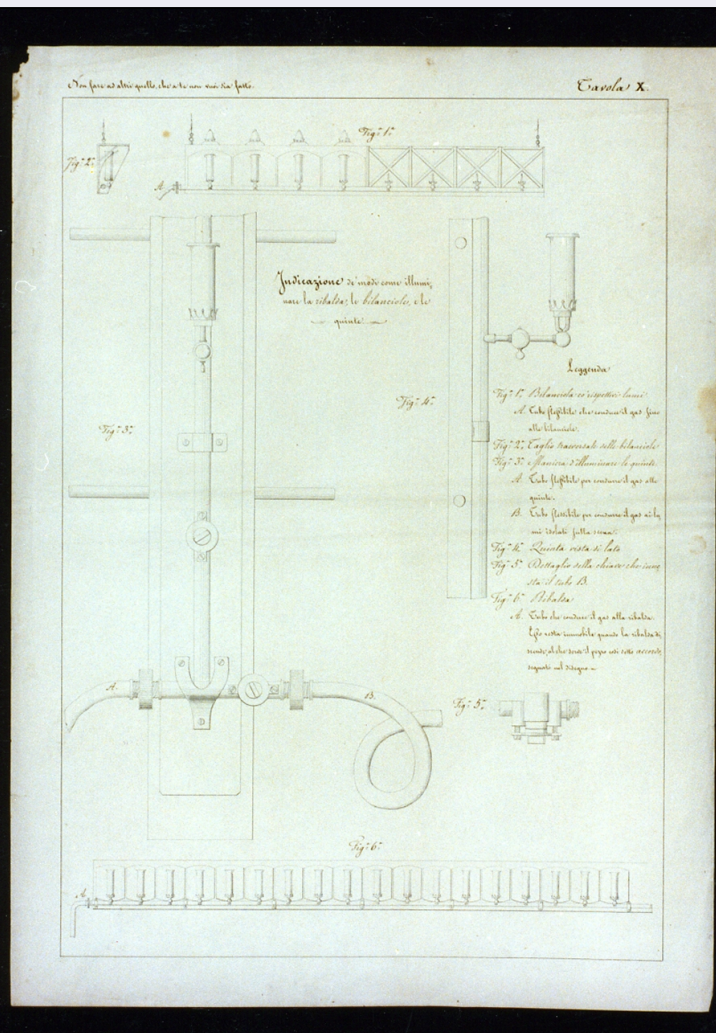 Non fare ad altri quello, che a te non vuoi sia fatto.
Tavola X.
Fig.ª 1.ª
Fig.ª 2.ª
A.
Indicazione de' modi come illumi-
nare la ribalta, le bilanciole, e le
quinte
Fig.ª 3.ª
Fig.ª 4.ª
Leggenda
Fig.ª 1.ª Bilanciola co' rispettivi lumi
A. Tubo flessibile che conduce il gas fino
alla bilanciola.
Fig.ª 2.ª Taglio trasversale della bilanciola
Fig.ª 3.ª Maniera d'illuminare le quinte.
A. Tubo flessibile per condurre il gas alle
quinte.
B. Tubo flessibile per condurre il gas ai lu-
mi isolati sulla scena.
Fig.ª 4.ª Quinta vista di lato
Fig.ª 5.ª Dettaglio della chiave che inne-
sta il tubo B.
Fig.ª 6.ª Ribalta
A. Tubo che conduce il gas alla ribalta.
Esso resta immobile quando la ribalta di-
scende, il che
segnati nel disegno
A.
B.
Fig.ª 5.ª
Fig.ª 6.ª
A.